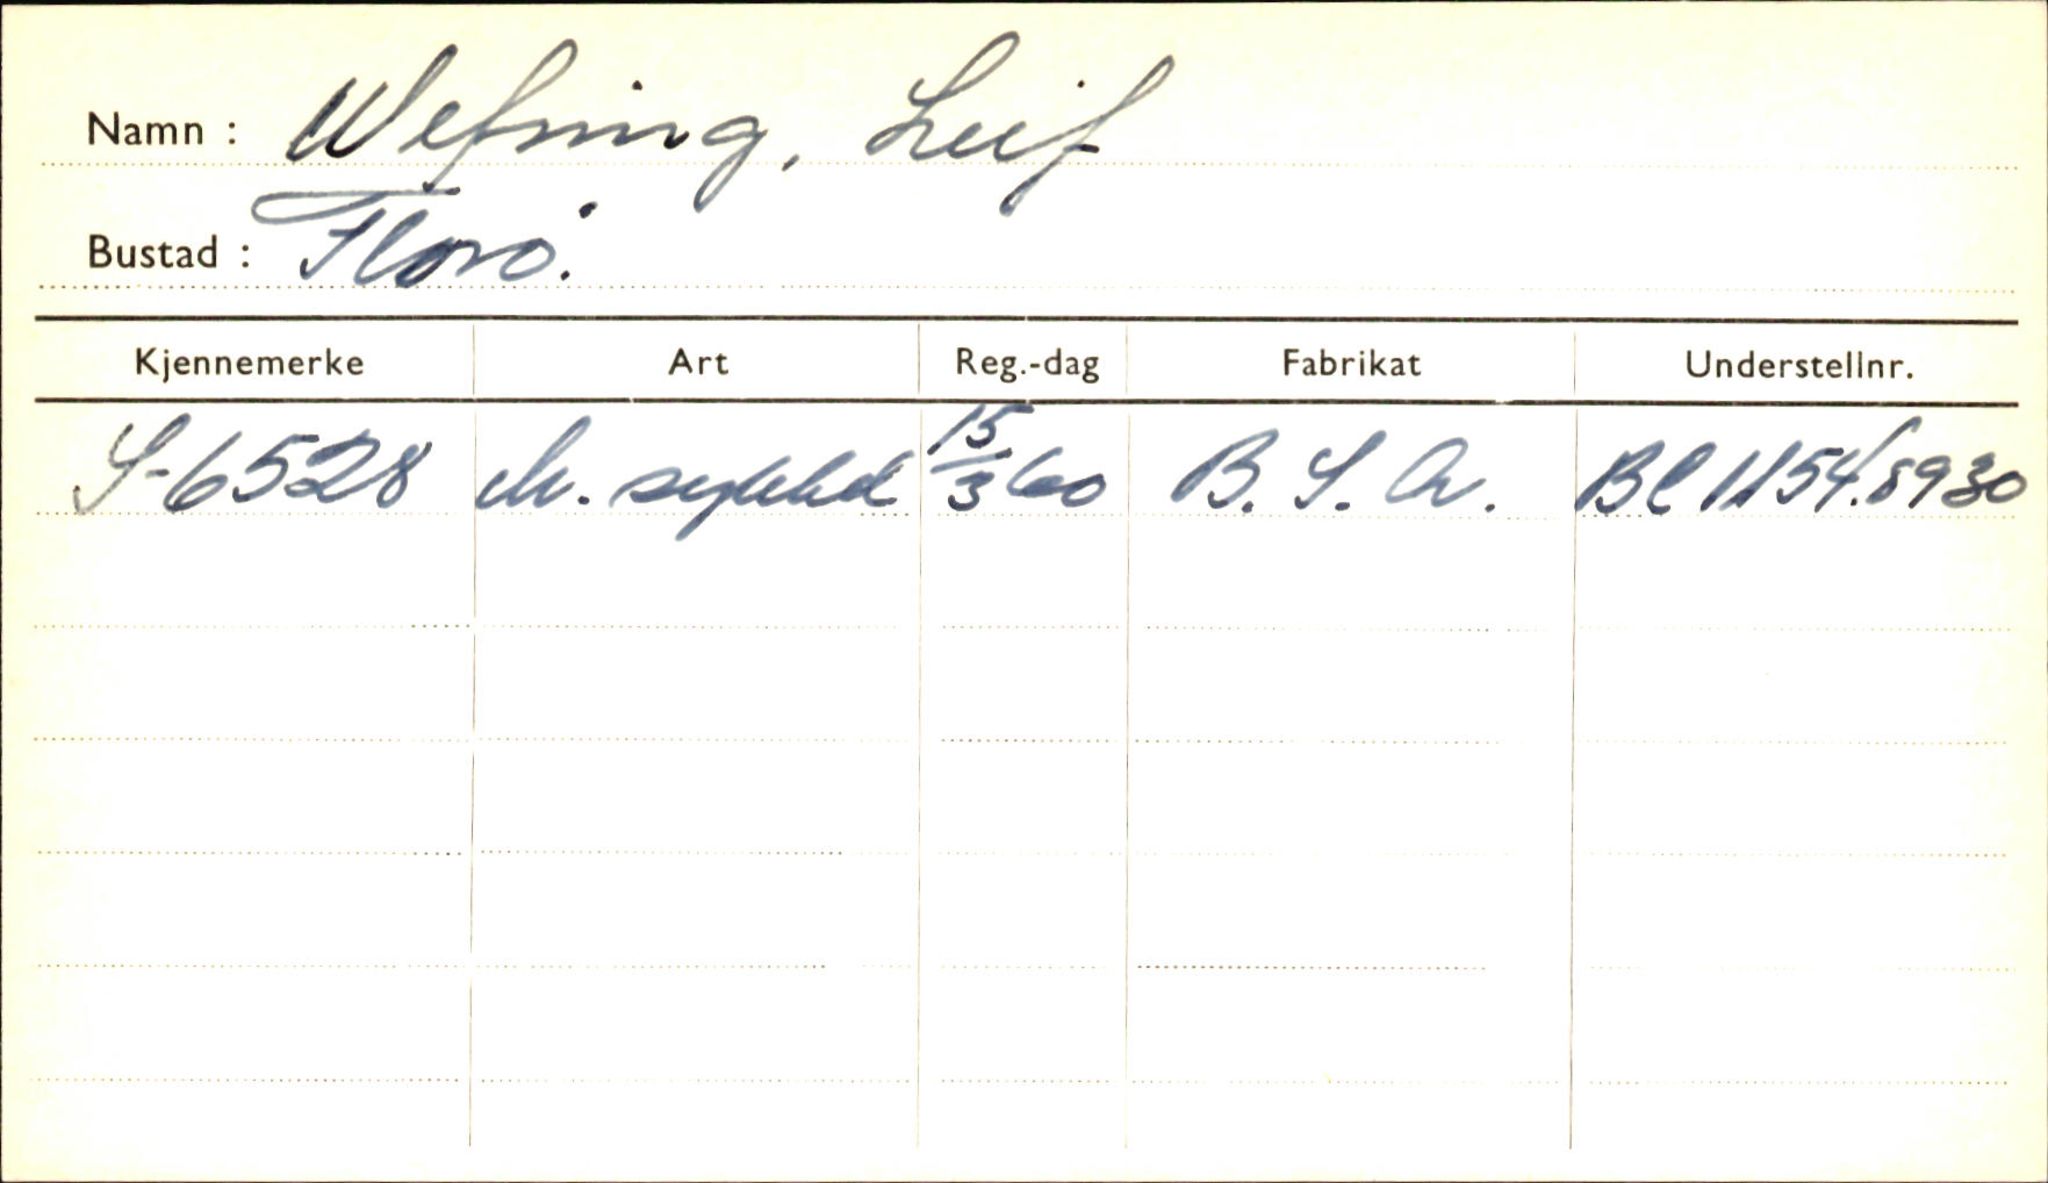 Namn : Wefring, Leif
Bustad : Florø.
Kjennemerke Art Reg.-dag Fabrikat Understellnr.
S-6528 M. sykkel 15/3 60 B. S. A.